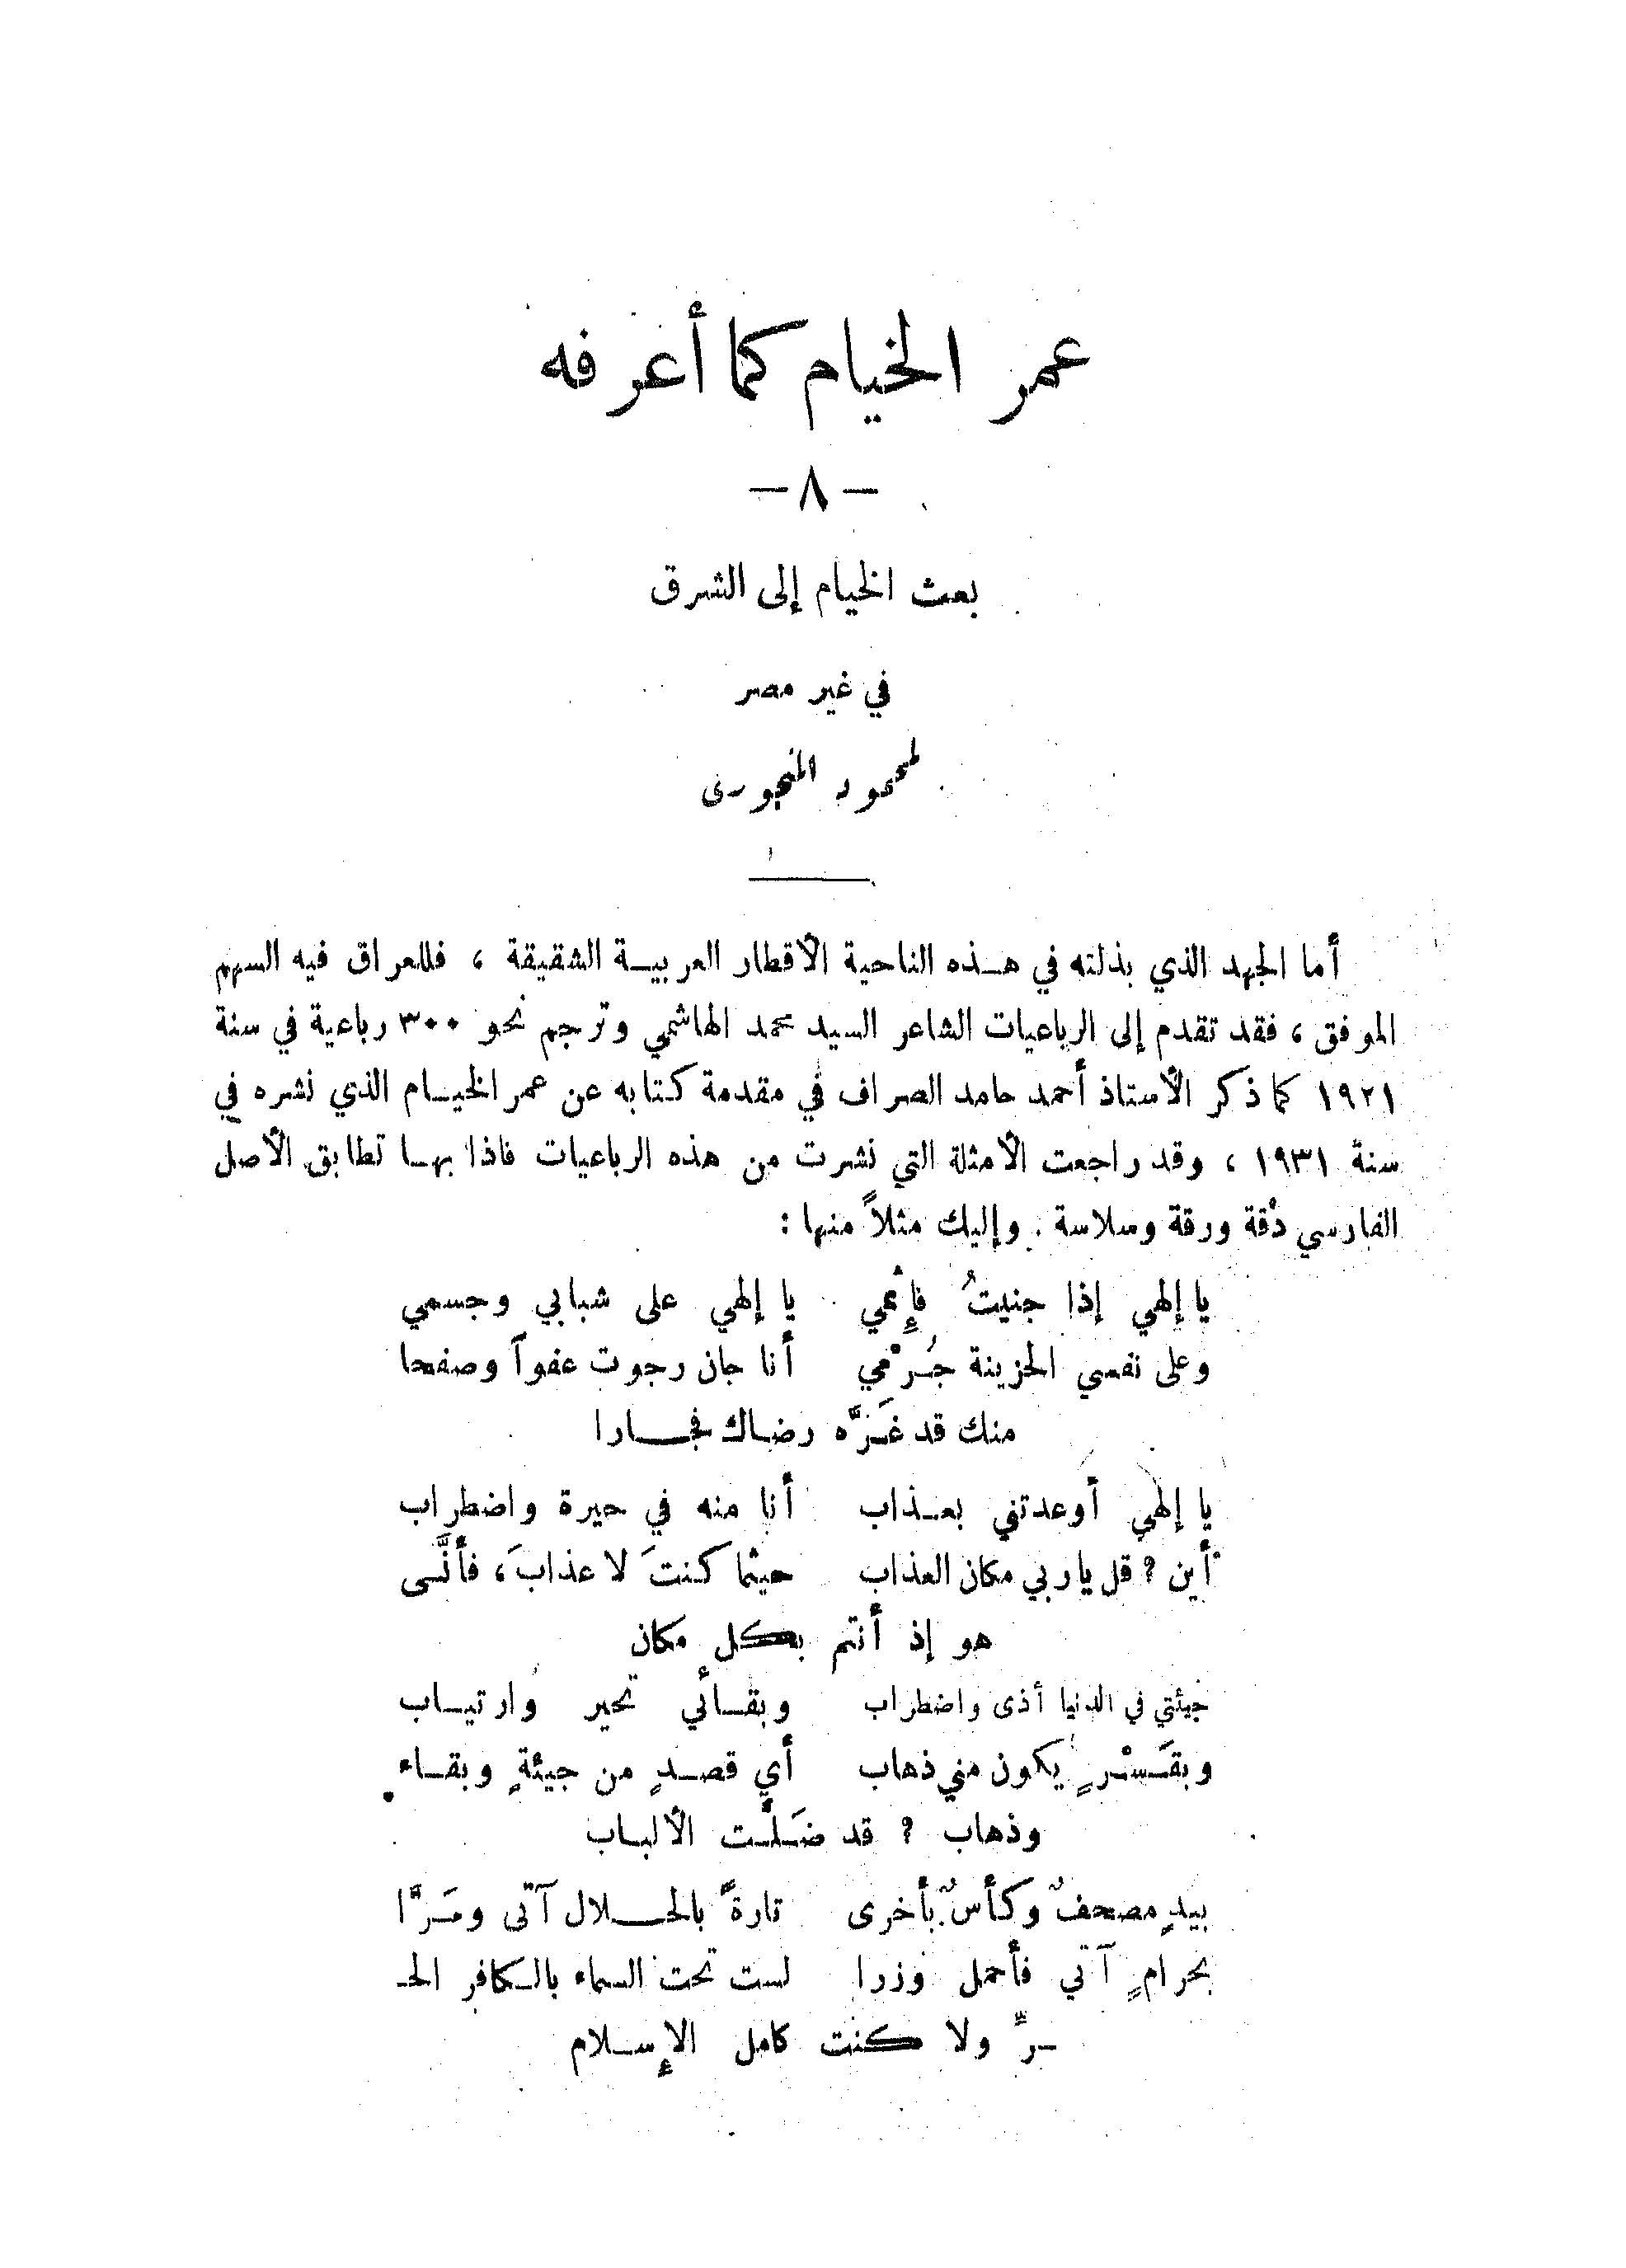 عمر الخيام كما أعرفه
— ٨ —
بعث الخيام إلى الشرق
في غير مصر
لمحمود المنجورى
أما الجهد الذي بذلته في هذه الناحية الأقطار العربية الشقيقة ، فللعراق فيه السهم
الموفق ، فقد تقدم إلى الرباعيات الشاعر السيد محمد الهاشمي وترجم نحو ٣٠٠ رباعية في سنة
١٩٢١ كما ذكر الأستاذ أحمد حامد الصراف في مقدمة كتابه عن عمر الخيام الذي نشره في
سنة ١٩٣١ ، وقد راجعت الأمثلة التي نشرت من هذه الرباعيات فاذا بها تطابق الأصل
الفارسي دقة ورقة وسلاسة . وإليك مثلاً منها :
يا إلهي إذا جنيتُ فإثمي يا إلهي على شبابي وجسمي
وعلى نفسي الحزينة جُرْمي أنا جان رجوت عفواً وصفحا
منك قد غَرَّه رضاك فجارا
يا إلهي أوعدتني بعذاب أنا منه في حيرة واضطراب
أين ؟ قل ياربي مكان العذاب حيثما كنتَ لا عذابَ، فأنَّى
هو إذ أنتم بكل مكان
جيئتي في الدنيا أذى واضطراب وبقائي تحير وارتياب
وبقَسْرٍ يكون مني ذهاب أي قصدٍ من جيئةٍ وبقاء
وذهاب ؟ قد ضَلَّت الألباب
بيدٍ مصحفٌ وكأسٌ بأخرى تارةً بالحلال آتى ومَرَّا
بحرامٍ آتي فأحمل وزرا لست تحت السماء بالكافر الحـ
ـرِّ ولا كنت كامل الإسلام